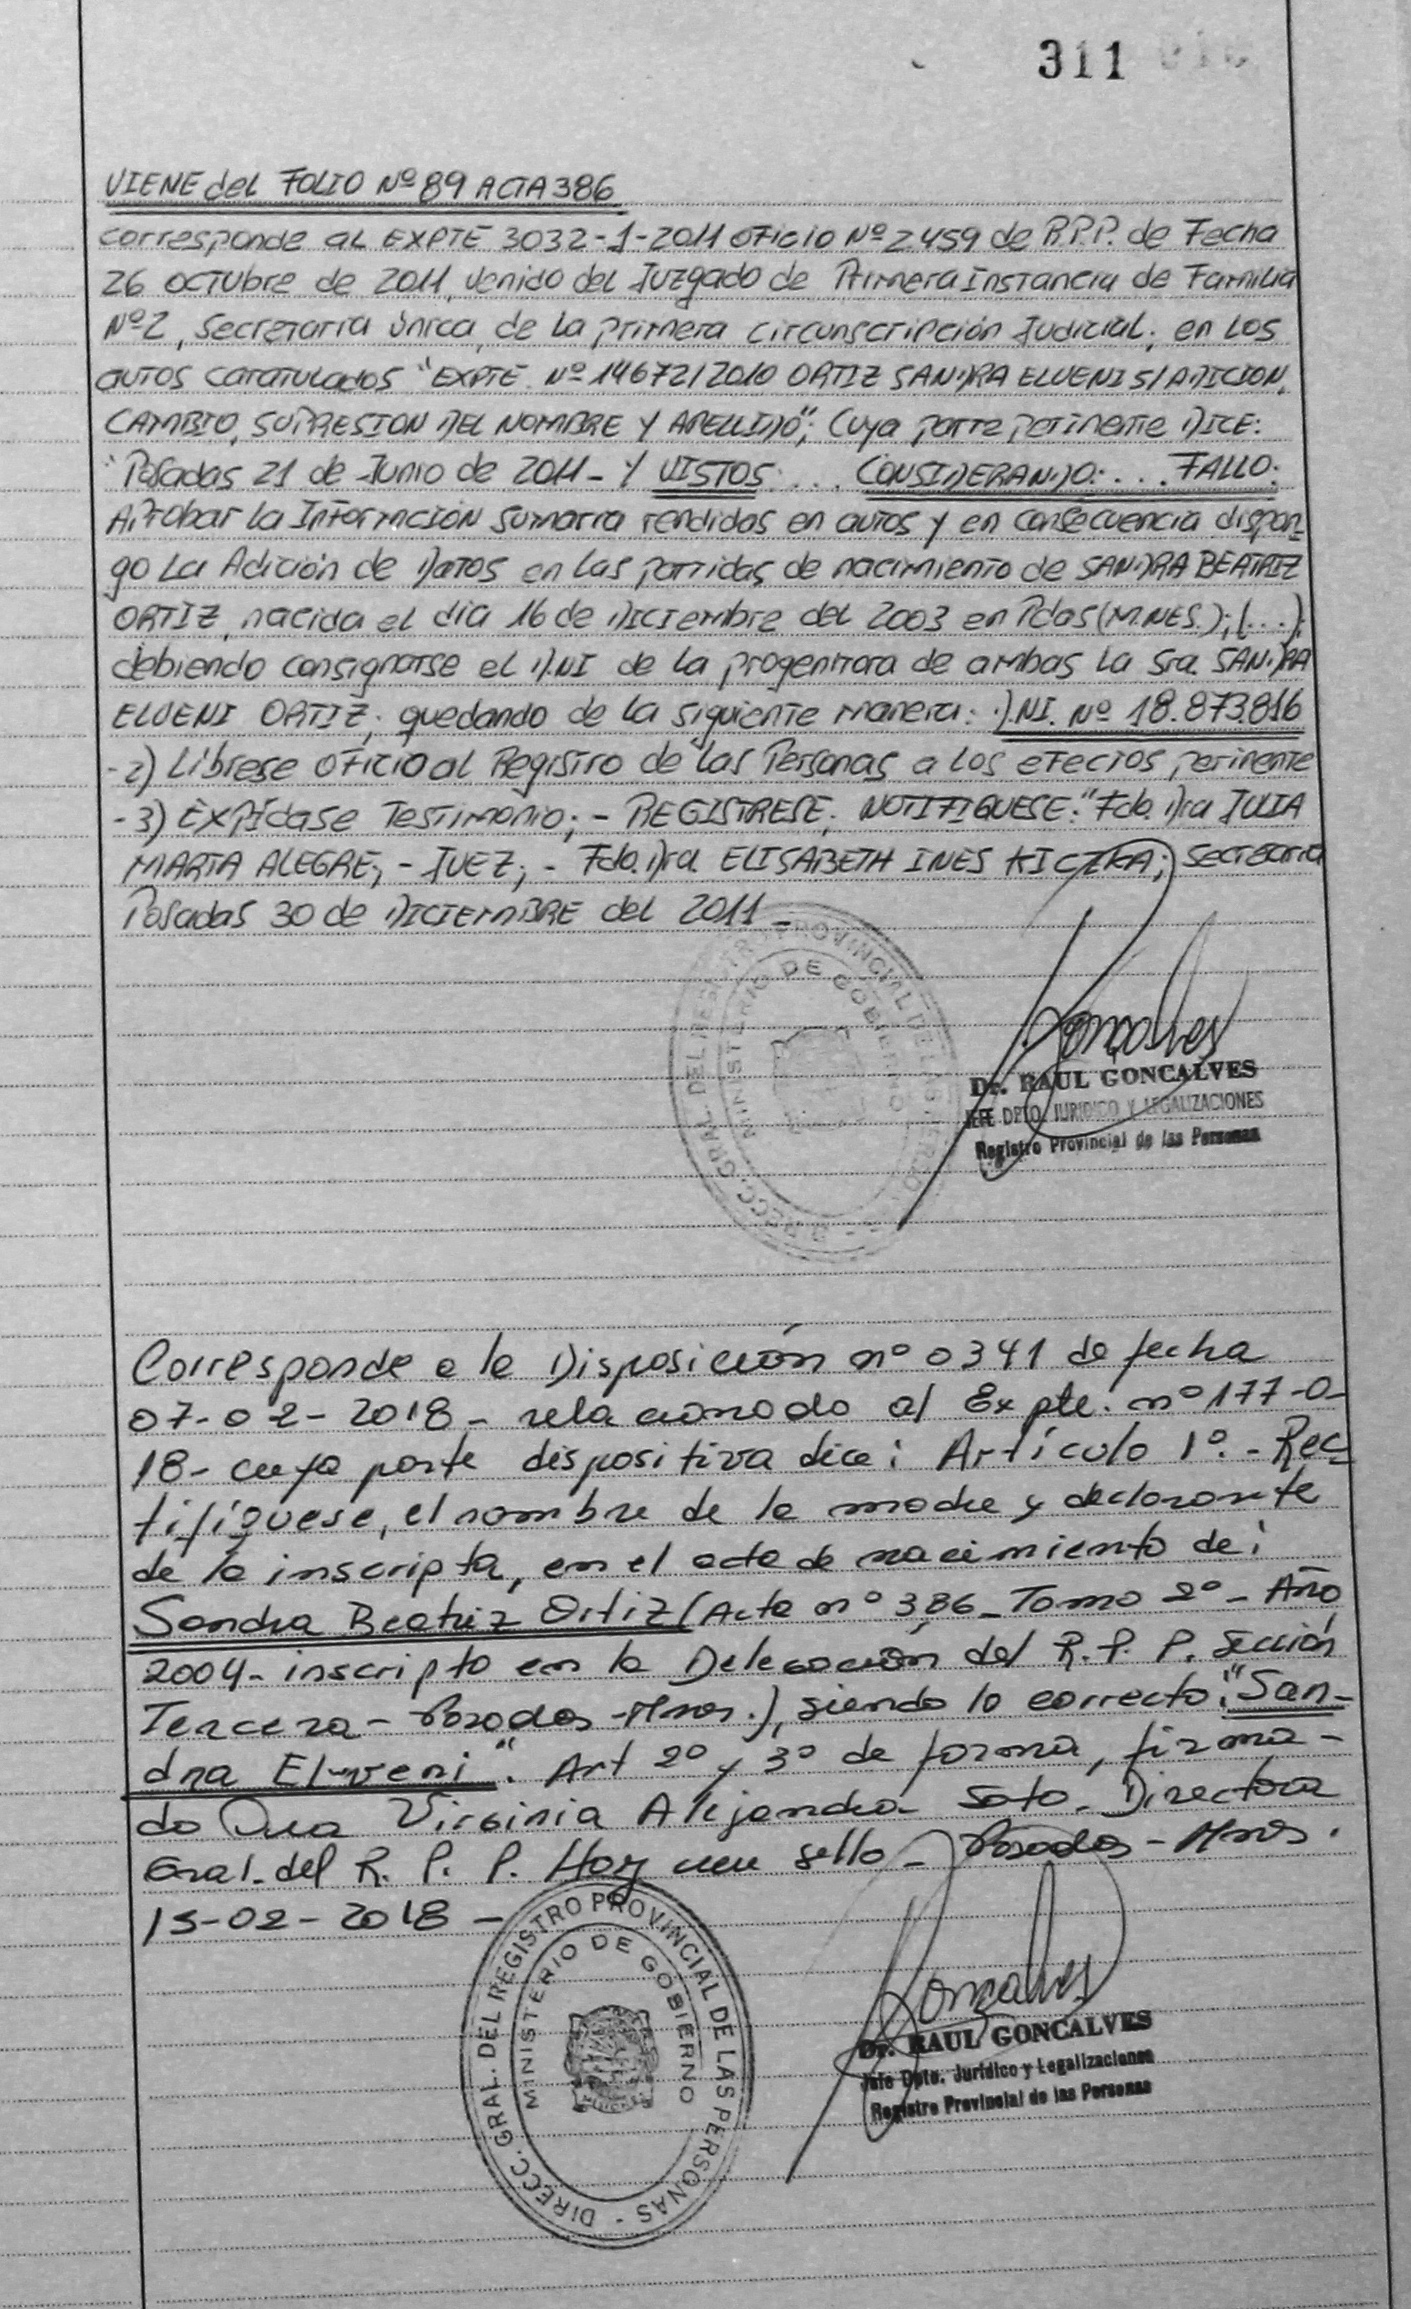 311
VIENE del FOLIO Nº 89 ACTA 386
corresponde al EXPTE 3032-1-2011 OFICIO Nº 2459 de R.P.P. de Fecha
26 OCTUbre de 2011, venido del Juzgado de Primera Instancia de Familia
Nº 2, Secretaria Única, de la primera circunscripción Judicial, en los
autos caratulados "EXPTE Nº 14672/2010 ORTIZ SANDRA ELVENI S/ADICION,
CAMBIO, SUPRESION DEL NOMBRE Y APELLIDO"; Cuya parte pertinente DICE:
"Posadas 21 de Junio de 2011 - Y VISTOS: ... CONSIDERANDO: ... FALLO:
Aprobar la Información sumaria rendidas en autos y en consecuencia dispon-
go La Adición de Datos en las partidas de nacimiento de SANDRA BEATRIZ
ORTIZ, nacida el día 16 de Diciembre del 2003 en Pdas (M.NES.); (...);
debiendo consignarse el D.NI de la progenitora de ambas la Sra. SANDRA
ELVENI ORTIZ, quedando de la siguiente manera: D.NI. Nº 18.873.816
- 2) Líbrese OFICIO al Registro de las Personas a los efectos pertinente
- 3) EXPÍdase Testimonio; - REGISTRESE, NOTIFIQUESE." Fdo. Dra JULIA
MARTA ALEGRE, - JUEZ, - Fdo. Dra. ELISABETH INES KICZKA; Secretaria
Posadas 30 de DICIEMBRE del 2011 -
DIRECC. GRAL. DEL REGISTRO PROVINCIAL DE LAS PERSONAS
MINISTERIO DE GOBIERNO
Goncalves
Dr. RAUL GONCALVES
JEFE DPTO. JURIDICO Y LEGALIZACIONES
Registro Provincial de las Personas
Corresponde a la Disposición nº 0341 de fecha
07-02-2018 - relacionado al Expte. nº 177-O-
18- cuya parte dispositiva dice: Artículo 1º. - Rec-
tifíquese, el nombre de la madre y declarante
de la inscripta, en el acta de nacimiento de:
Sandra Beatriz Ortiz (Acta nº 386 - Tomo 2º - Año
2004 - inscripto en la Delegación del R. P. P. Sección
Tercera - Posadas - Mnes.), siendo lo correcto: "San-
dra Elveni". Art 2º y 3º de forma, firma-
do Dra Virginia Alejandra Soto - Directora
Gral. del R. P. P. Hay un sello - Posadas - Mnes.
15-02-2018 -
DIRECC. GRAL. DEL REGISTRO PROVINCIAL DE LAS PERSONAS -
MINISTERIO DE GOBIERNO
Goncalves
Dr. RAUL GONCALVES
Jefe Dpto. Jurídico y Legalizaciones
Registro Provincial de las Personas